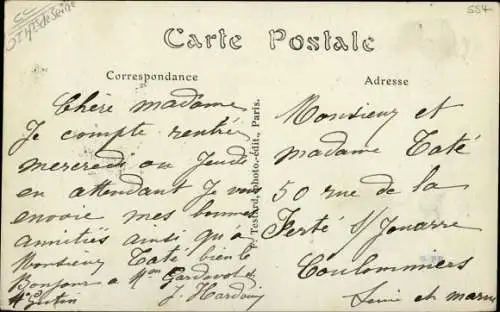 554
Carte Postale
Correspondance
Adresse
Chère madame
Je compte rentré
mercredi ou Jeudi
en attendant Je vous
envoie mes bonnes
amnitiés ainsi qu'à
Monsieur Taté bien le
Bonjour a Mon
J. Hardouin
F. Testard, photo.-édit., Paris.
Monsieur et
madame Taté
50 rue de la
Ferté S/ Jouarre
Coulommiers
Seine et marne